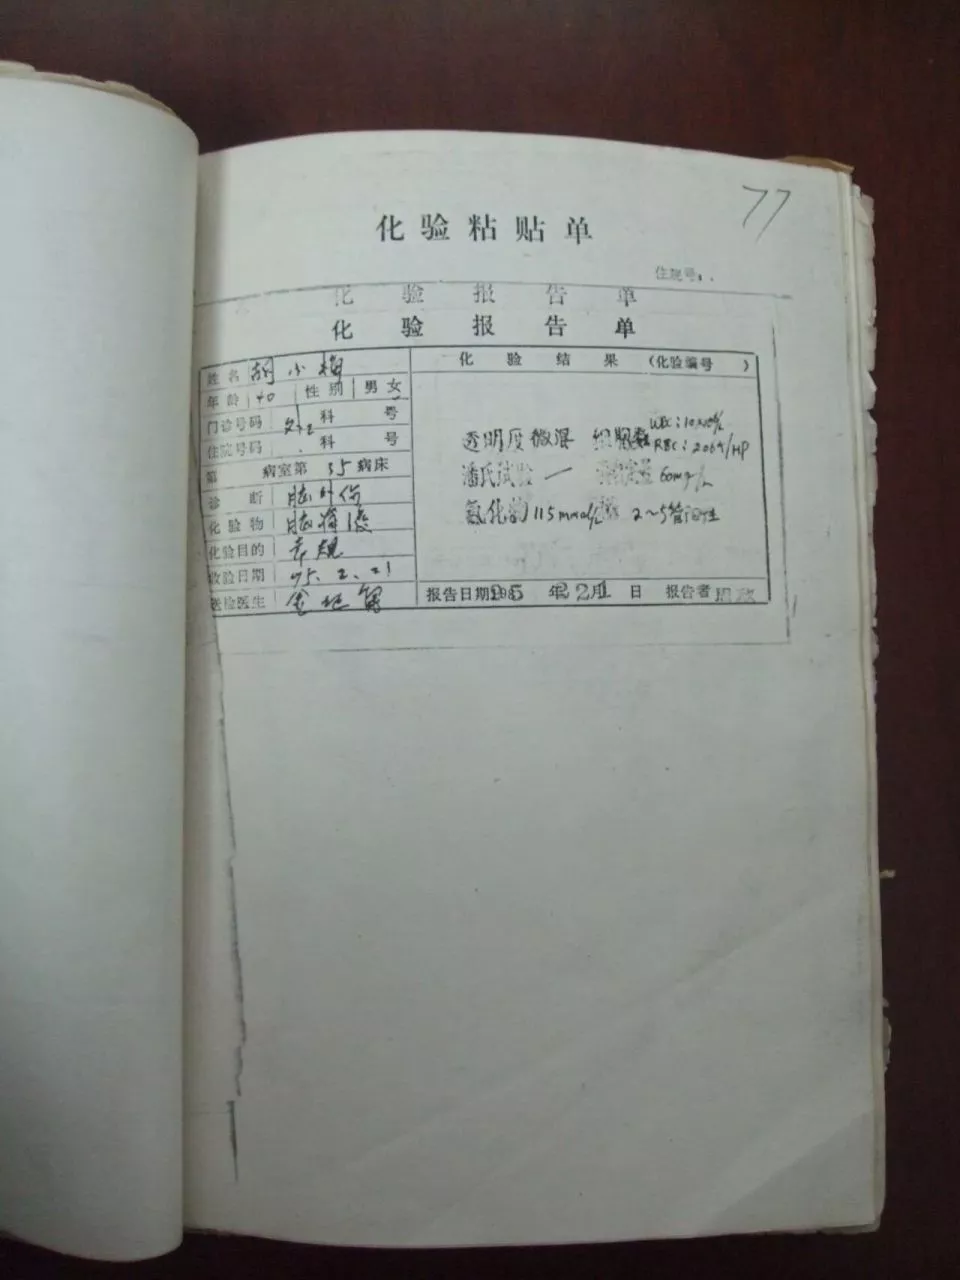 77
化验粘贴单
住院号：
化验报告单
化验报告单
姓名 胡小梅
年龄 40 性别 男 女
门诊号码 科 号
住院号码 科 号
第 病室第 35 病床
诊断 脑外伤
化验物
化验目的 常规
收验日期 95.2.21
送检医生
化验结果 (化验编号 )
透明度 微混 细胞数 WBC:
RBC: /HP
潘氏试验 — 60mg/L
氯化物 115mmol/L 2～5管阳性
报告日期 年 2 月 日 报告者